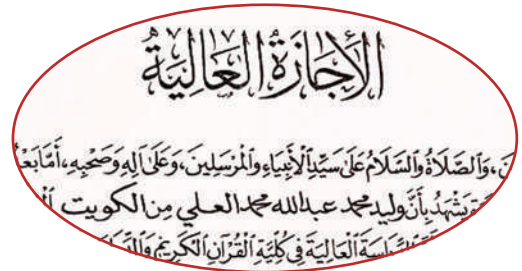 الْإِجَازَةُ الْعَالِيَةُ
وَالصَّلَاةُ وَالسَّلَامُ عَلَىٰ سَيِّدِ الْأَنْبِيَاءِ وَالْمُرْسَلِينَ، وَعَلَىٰ آلِهِ وَصَحْبِهِ، أَمَّا بَعْدُ
يَشْهَدُ بِأَنَّ وليد محمد عبدالله محمد العلي من الكويت
الْعَالِيَةَ فِي كُلِّيَّةِ الْقُرْآنِ الْكَرِيمِ